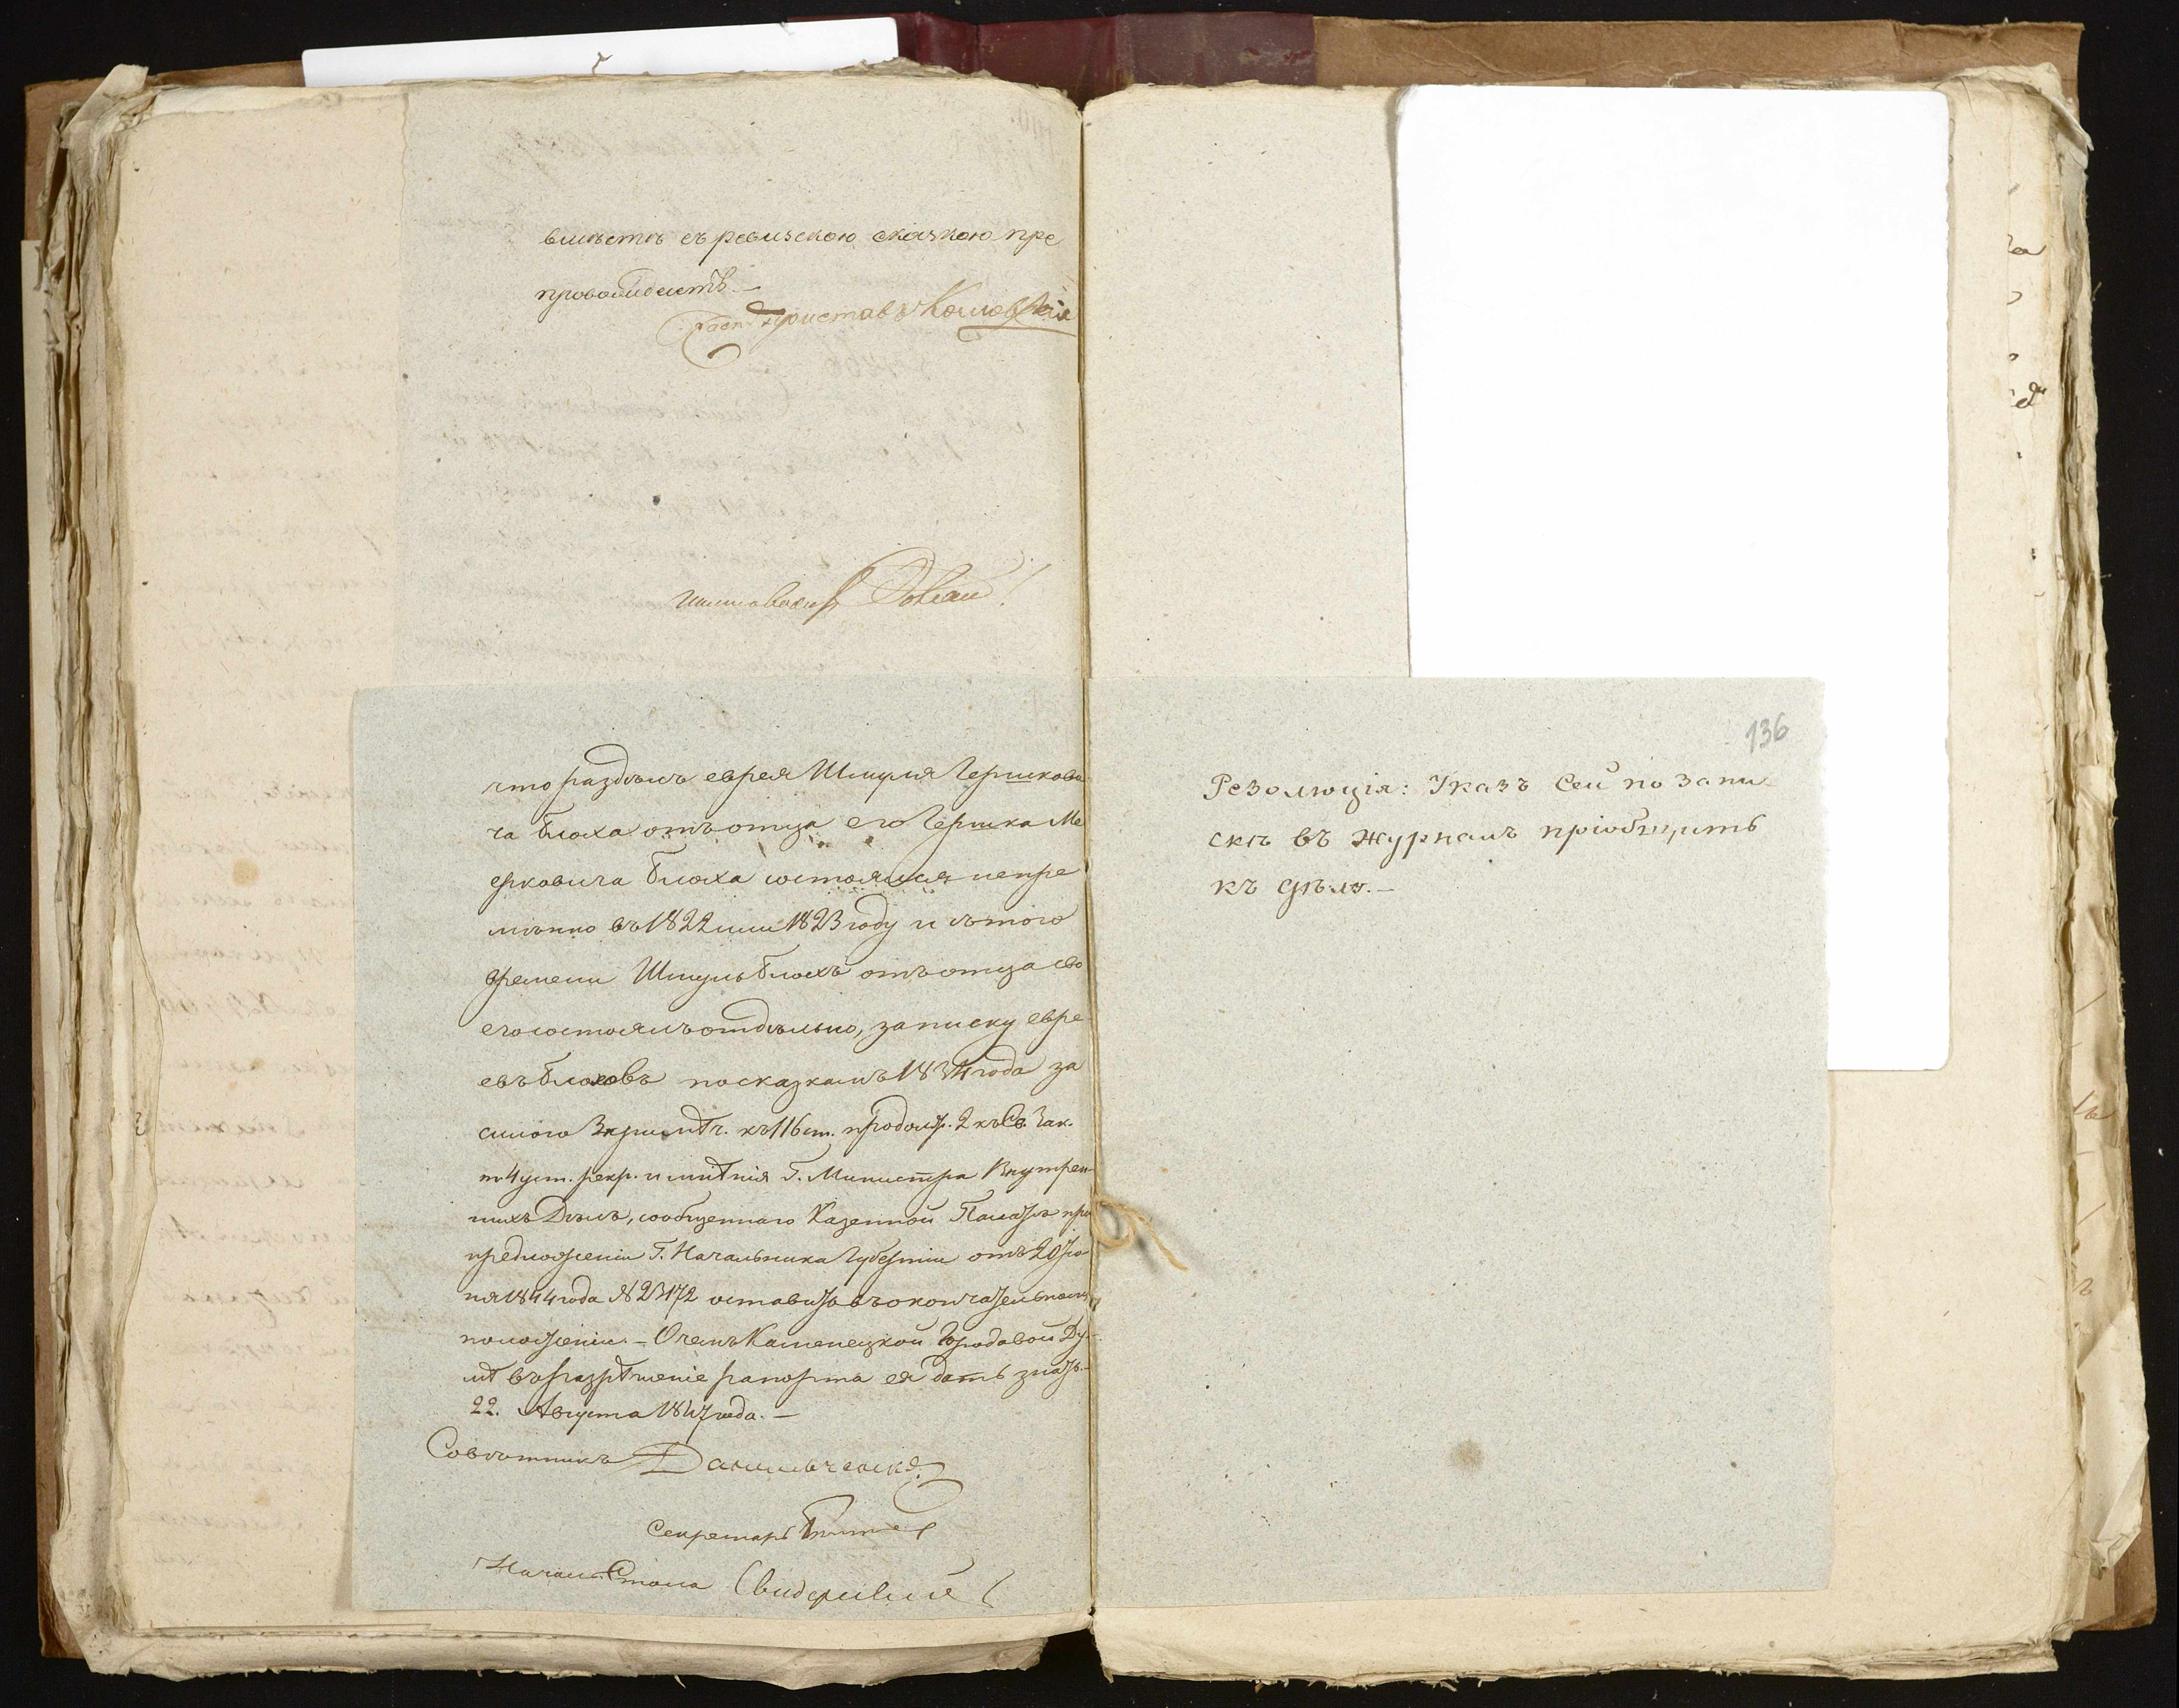 вместѣ съ ревизскою сказкою пре
провождаетъ. —
Част: Приставъ Козловскій
что раздѣлъ еврея Шмуля Гершкови
ча Блоха отъ отца его Гершка Ме
ерковича Блоха состоялся непре
мѣнно въ 1822 или 1823 году и съ того
времени Шмуль Блохъ отъ отца сво
его состоялъ отдѣльно, записку евре
евъ Блоховъ по сказкамъ 1834 года за
силою 3 примѣч. къ 116 ст. продолж. 2 къ Св. Зак.
т. 4 уст. рекр. и мнѣнія Г. Министра Внутрен
нихъ Дѣлъ, сообщеннаго Казенной Палатѣ при
предложеніи Г. Начальника Губерніи отъ 20 Ію
ня 1844 года № 23172 оставить въ окончательномъ
положеніи. — О чемъ Каменецкой Городовой Ду-
мѣ въ разрѣшеніе рапорта ея дать знать. —
22. Августа 1847 года. —
Совѣтникъ Данильченко
Секретарь
Начал. Стола Свидерскій
136
Резолюція: Указъ сей по запи
скѣ въ журналъ пріобщить
къ дѣлу. —